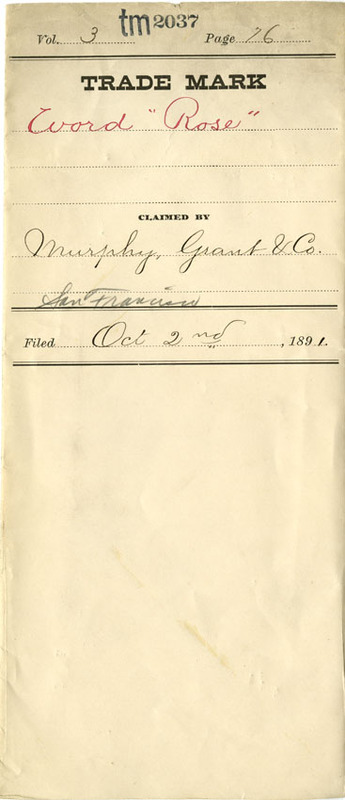 Vol. 3 tm2037 Page 76
TRADE MARK
Word "Rose"
CLAIMED BY
Murphy, Grant & Co.
San Francisco
Filed Oct 2nd, 1891.